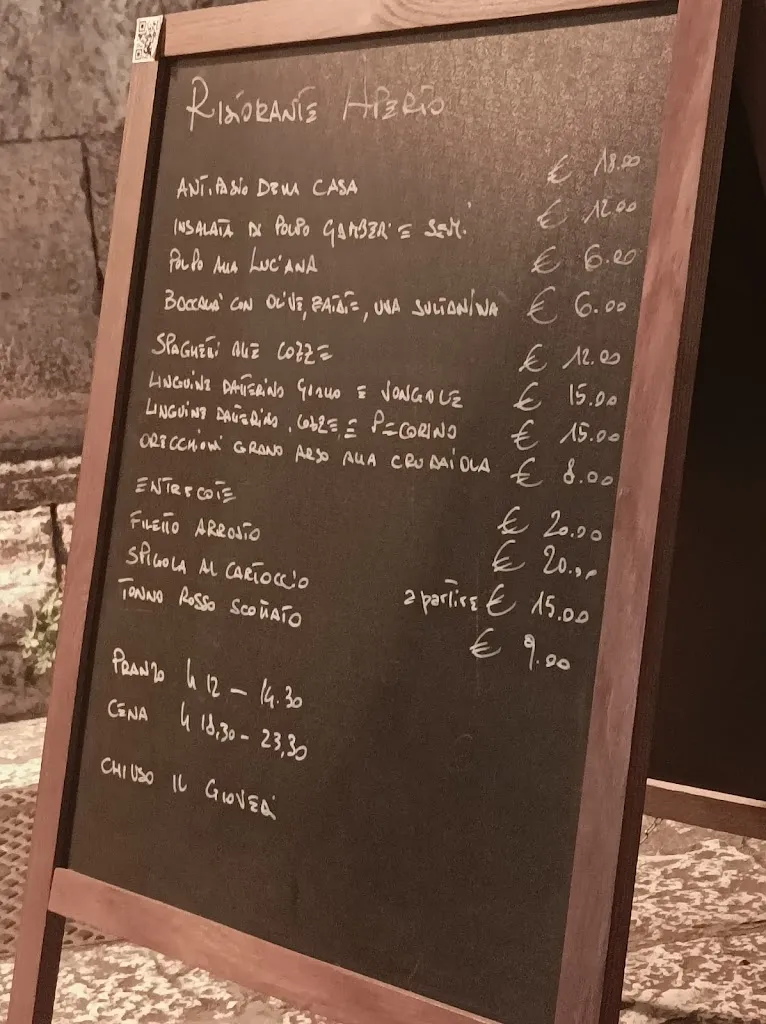 RISTORANTE APERTO
ANTIPASTO DELLA CASA € 18.00
INSALATA DI POLPO GAMBERI E SEPI € 12.00
POLPO ALLA LUCIANA € 6.00
BACCALA' CON OLIVE, PATATE, UVA SULTANINA € 6.00
SPAGHETTI ALLE COZZE € 12.00
LINGUINE DATTERINO GIALLO E VONGOLE € 15.00
LINGUINE DATTERINO, COZZE E PECORINO € 15.00
ORECCHIONI GRANO ARSO ALLA CRUDAIOLA € 8.00
ENTRECOTE € 20.00
FILETTO ARROSTO € 20.00
SPIGOLA AL CARTOCCIO a partire € 15.00
TONNO ROSSO SCOTTATO € 9.00
PRANZO h 12 - 14.30
CENA h 18,30 - 23,30
CHIUSO IL GIOVEDÌ